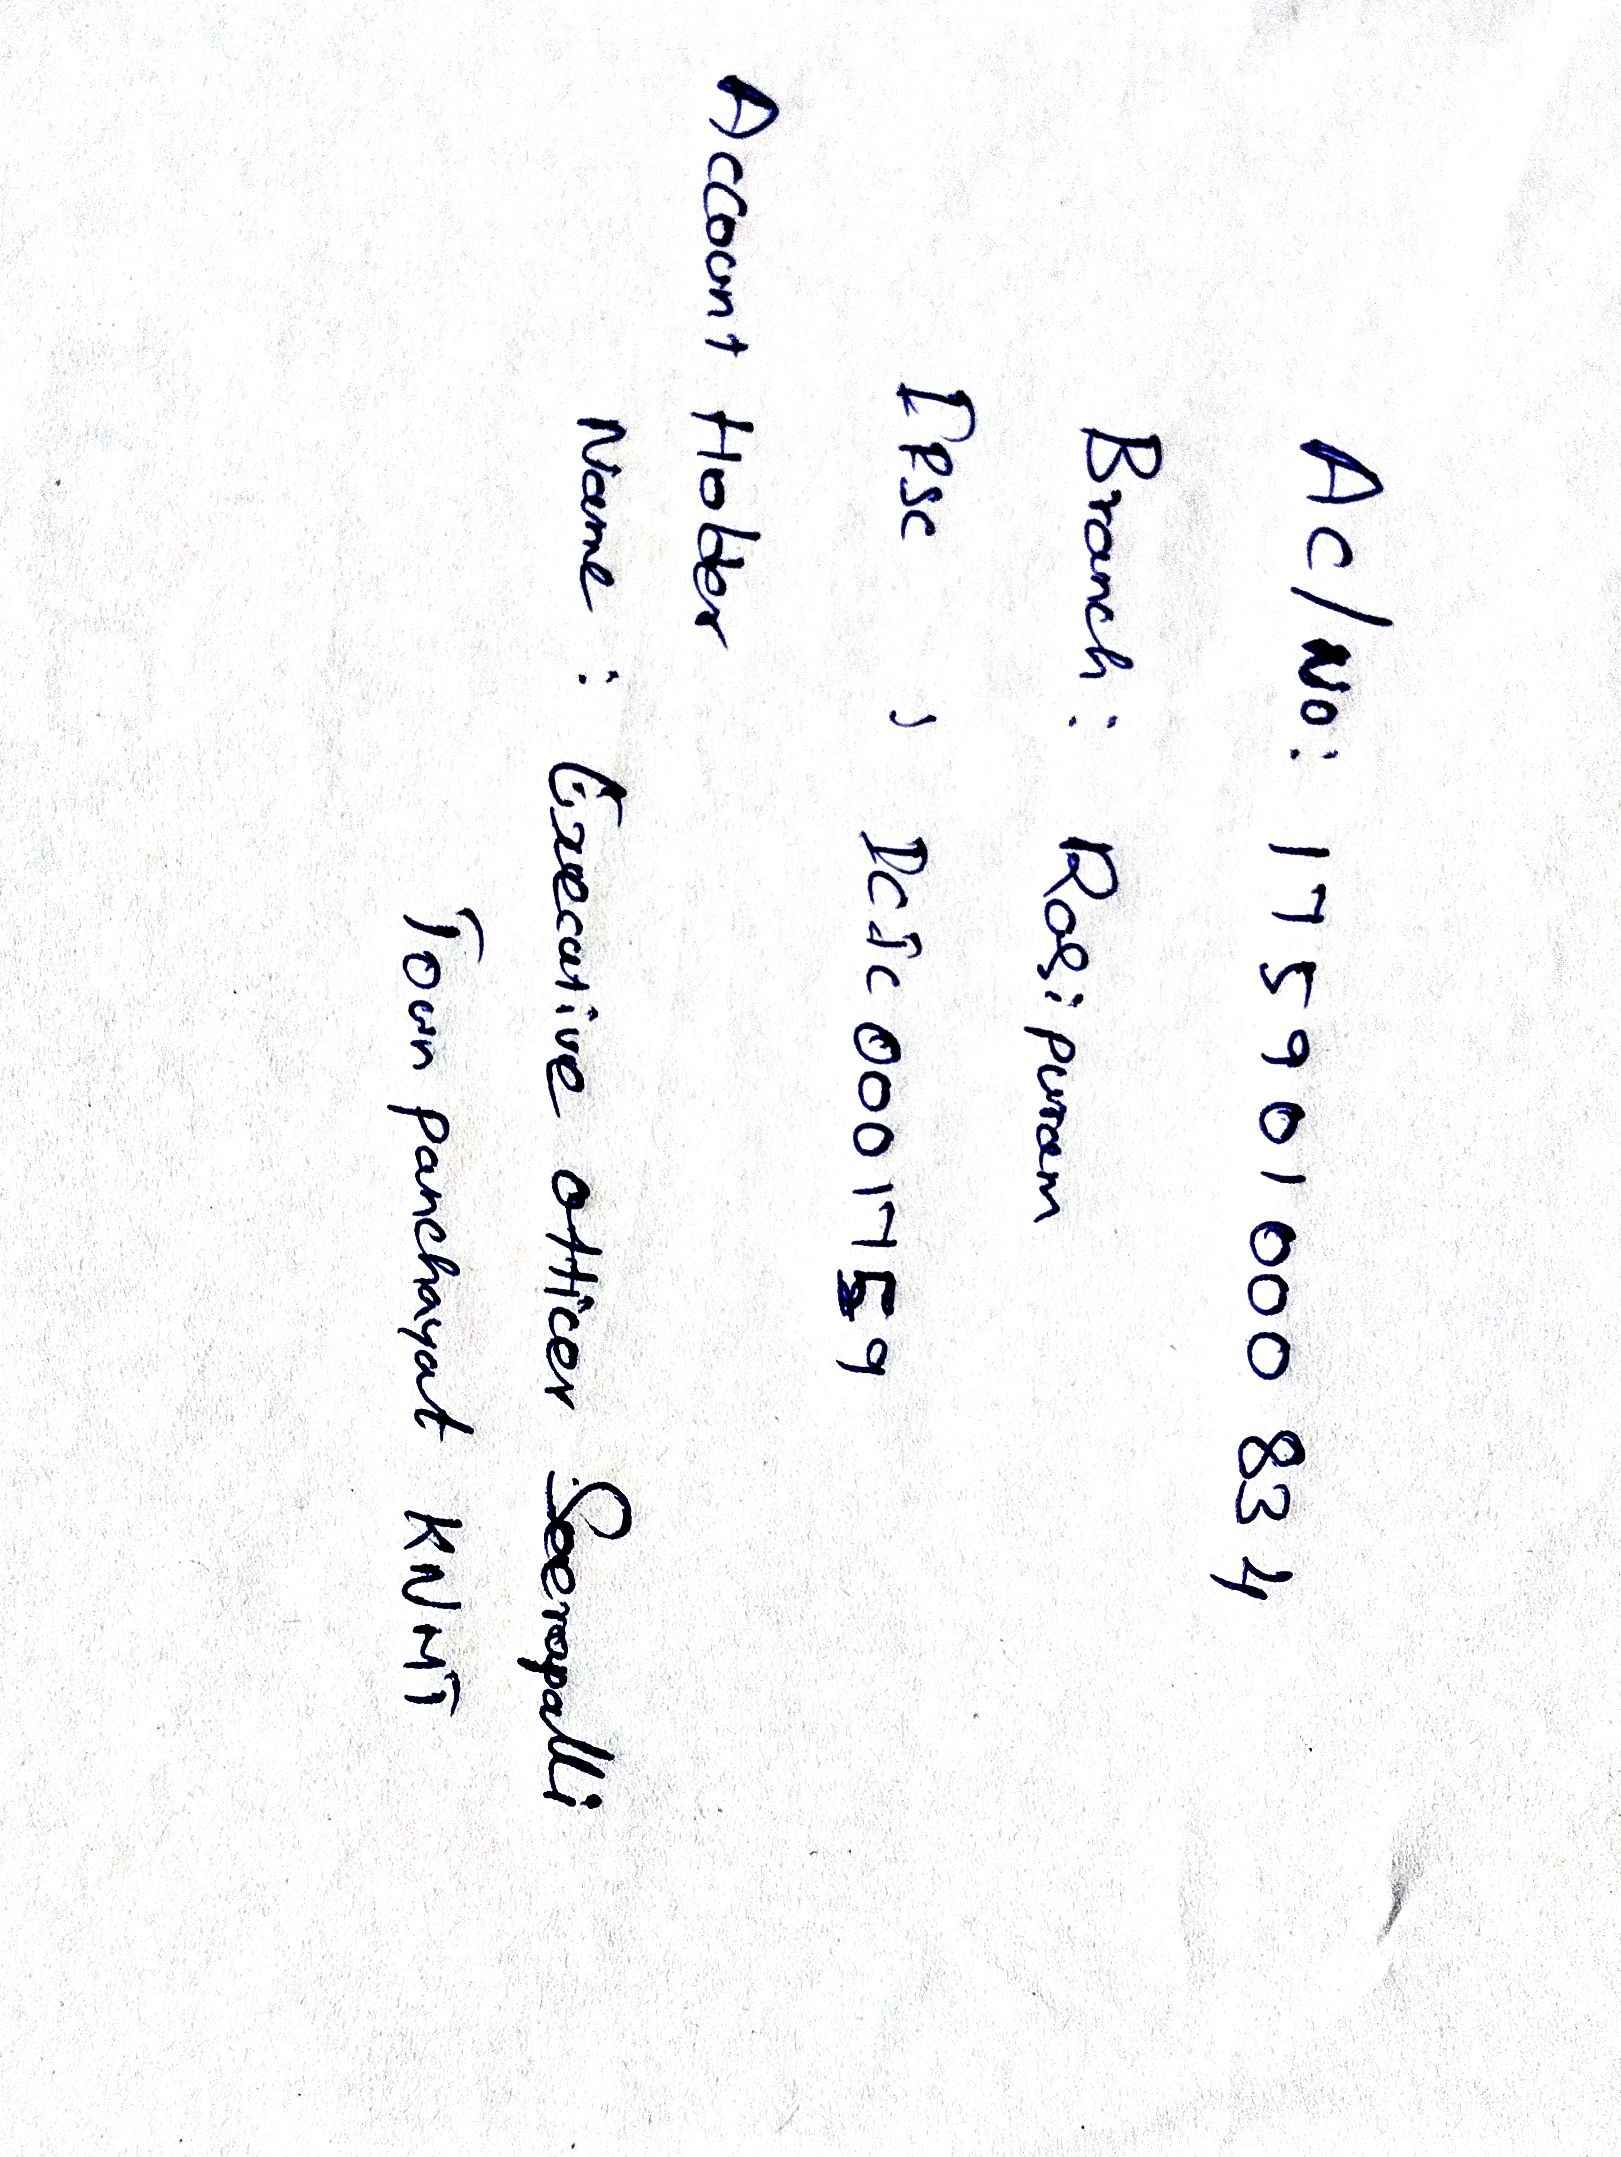 Ac/No: 175901000834
Branch: Rasipuram
IFSC : ICIC0001759
Account Holder
Name : Executive officer Seerapalli
Town panchayat KNMT